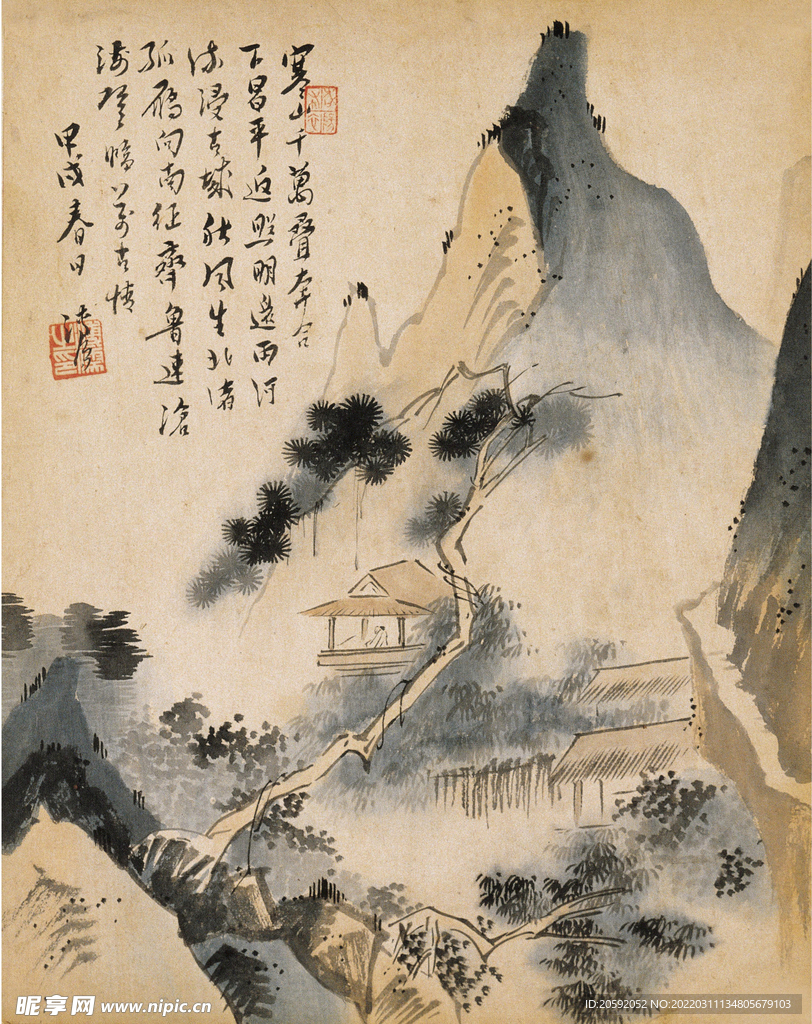 寒山千萬疊奔合
下昌平返照明邊雨河
流浸古城秋風生北渚
孤雁向南征齊魯連滄
海登臨萬古情
甲戌春日
昵享网 www.nipic.cn
ID:20592052 NO:20220311134805679103